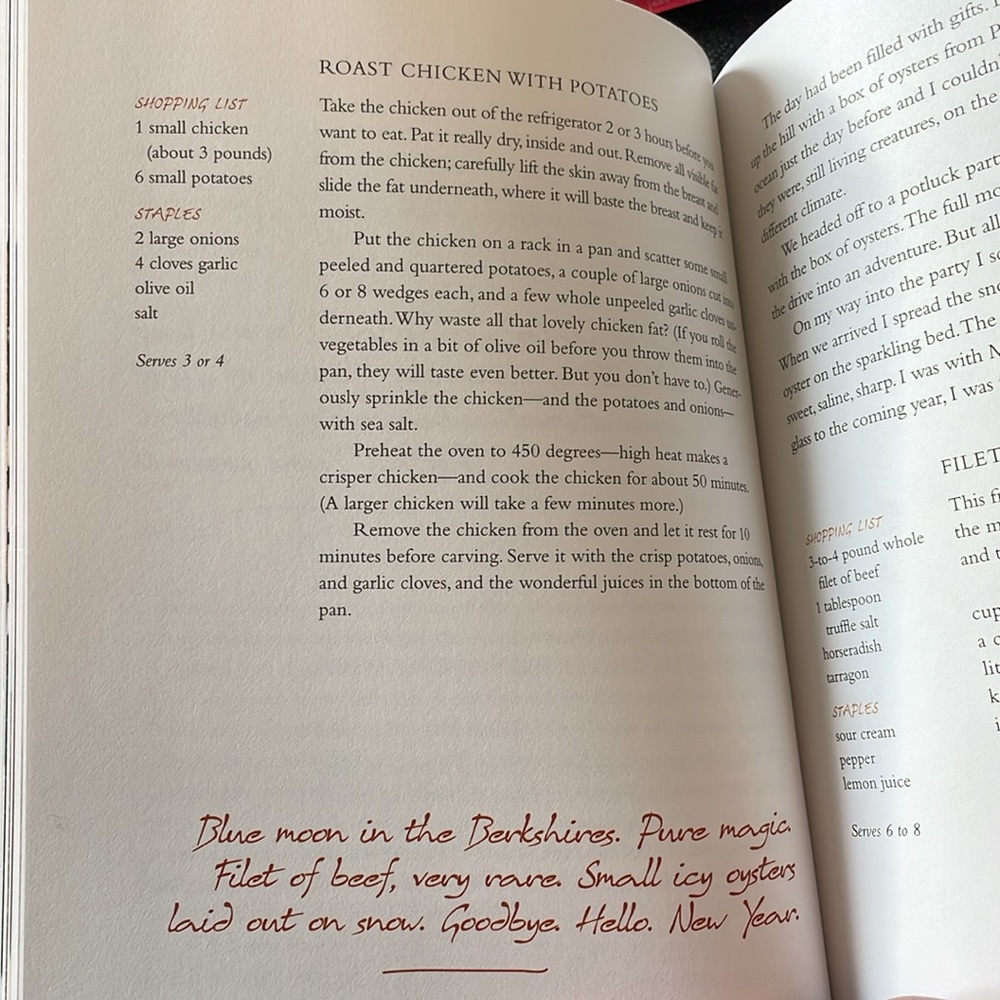 ROAST CHICKEN WITH POTATOES
SHOPPING LIST
1 small chicken
(about 3 pounds)
6 small potatoes
STAPLES
2 large onions
4 cloves garlic
olive oil
salt
Serves 3 or 4
Take the chicken out of the refrigerator 2 or 3 hours before you
want to eat. Pat it really dry, inside and out. Remove all visible fat
from the chicken; carefully lift the skin away from the breast and
slide the fat underneath, where it will baste the breast and keep it
moist.
Put the chicken on a rack in a pan and scatter some small
peeled and quartered potatoes, a couple of large onions cut into
6 or 8 wedges each, and a few whole unpeeled garlic cloves un-
derneath. Why waste all that lovely chicken fat? (If you roll the
vegetables in a bit of olive oil before you throw them into the
pan, they will taste even better. But you don't have to.) Gener-
ously sprinkle the chicken—and the potatoes and onions—
with sea salt.
Preheat the oven to 450 degrees—high heat makes a
crisper chicken—and cook the chicken for about 50 minutes.
(A larger chicken will take a few minutes more.)
Remove the chicken from the oven and let it rest for 10
minutes before carving. Serve it with the crisp potatoes, onions,
and garlic cloves, and the wonderful juices in the bottom of the
pan.
Blue moon in the Berkshires. Pure magic.
Filet of beef, very rare. Small icy oysters
laid out on snow. Goodbye. Hello. New Year.
The day had been filled with gifts.
up the hill with a box of oysters from
ocean just the day before and I couldn'
they were, still living creatures, on the
different climate.
We headed off to a potluck part
with the box of oysters. The full mo
the drive into an adventure. But all
On my way into the party I
When we arrived I spread the sno
oyster on the sparkling bed. The
sweet, saline, sharp. I was with
glass to the coming year, I was
FILET
SHOPPING LIST
3-to-4 pound whole
filet of beef
1 tablespoon
truffle salt
horseradish
tarragon
STAPLES
sour cream
pepper
lemon juice
Serves 6 to 8
This
the
and
cup
a
lit